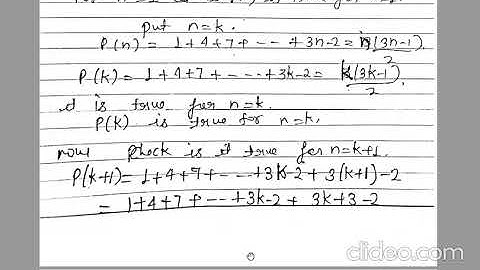 put n=k.
P(n) = 1+4+7+ --- +3n-2 = n(3n-1)/2
P(k) = 1+4+7+ - --- +3k-2 = k(3k-1)/2.
it is true for n=k.
P(k) is true for n=k.
now check is it true for n=k+1.
P(k+1) = 1+4+7+ - --- +3k-2+3(k+1)-2
= 1+4+7+ - --- +3k-2+ 3k+3-2
clideo.com